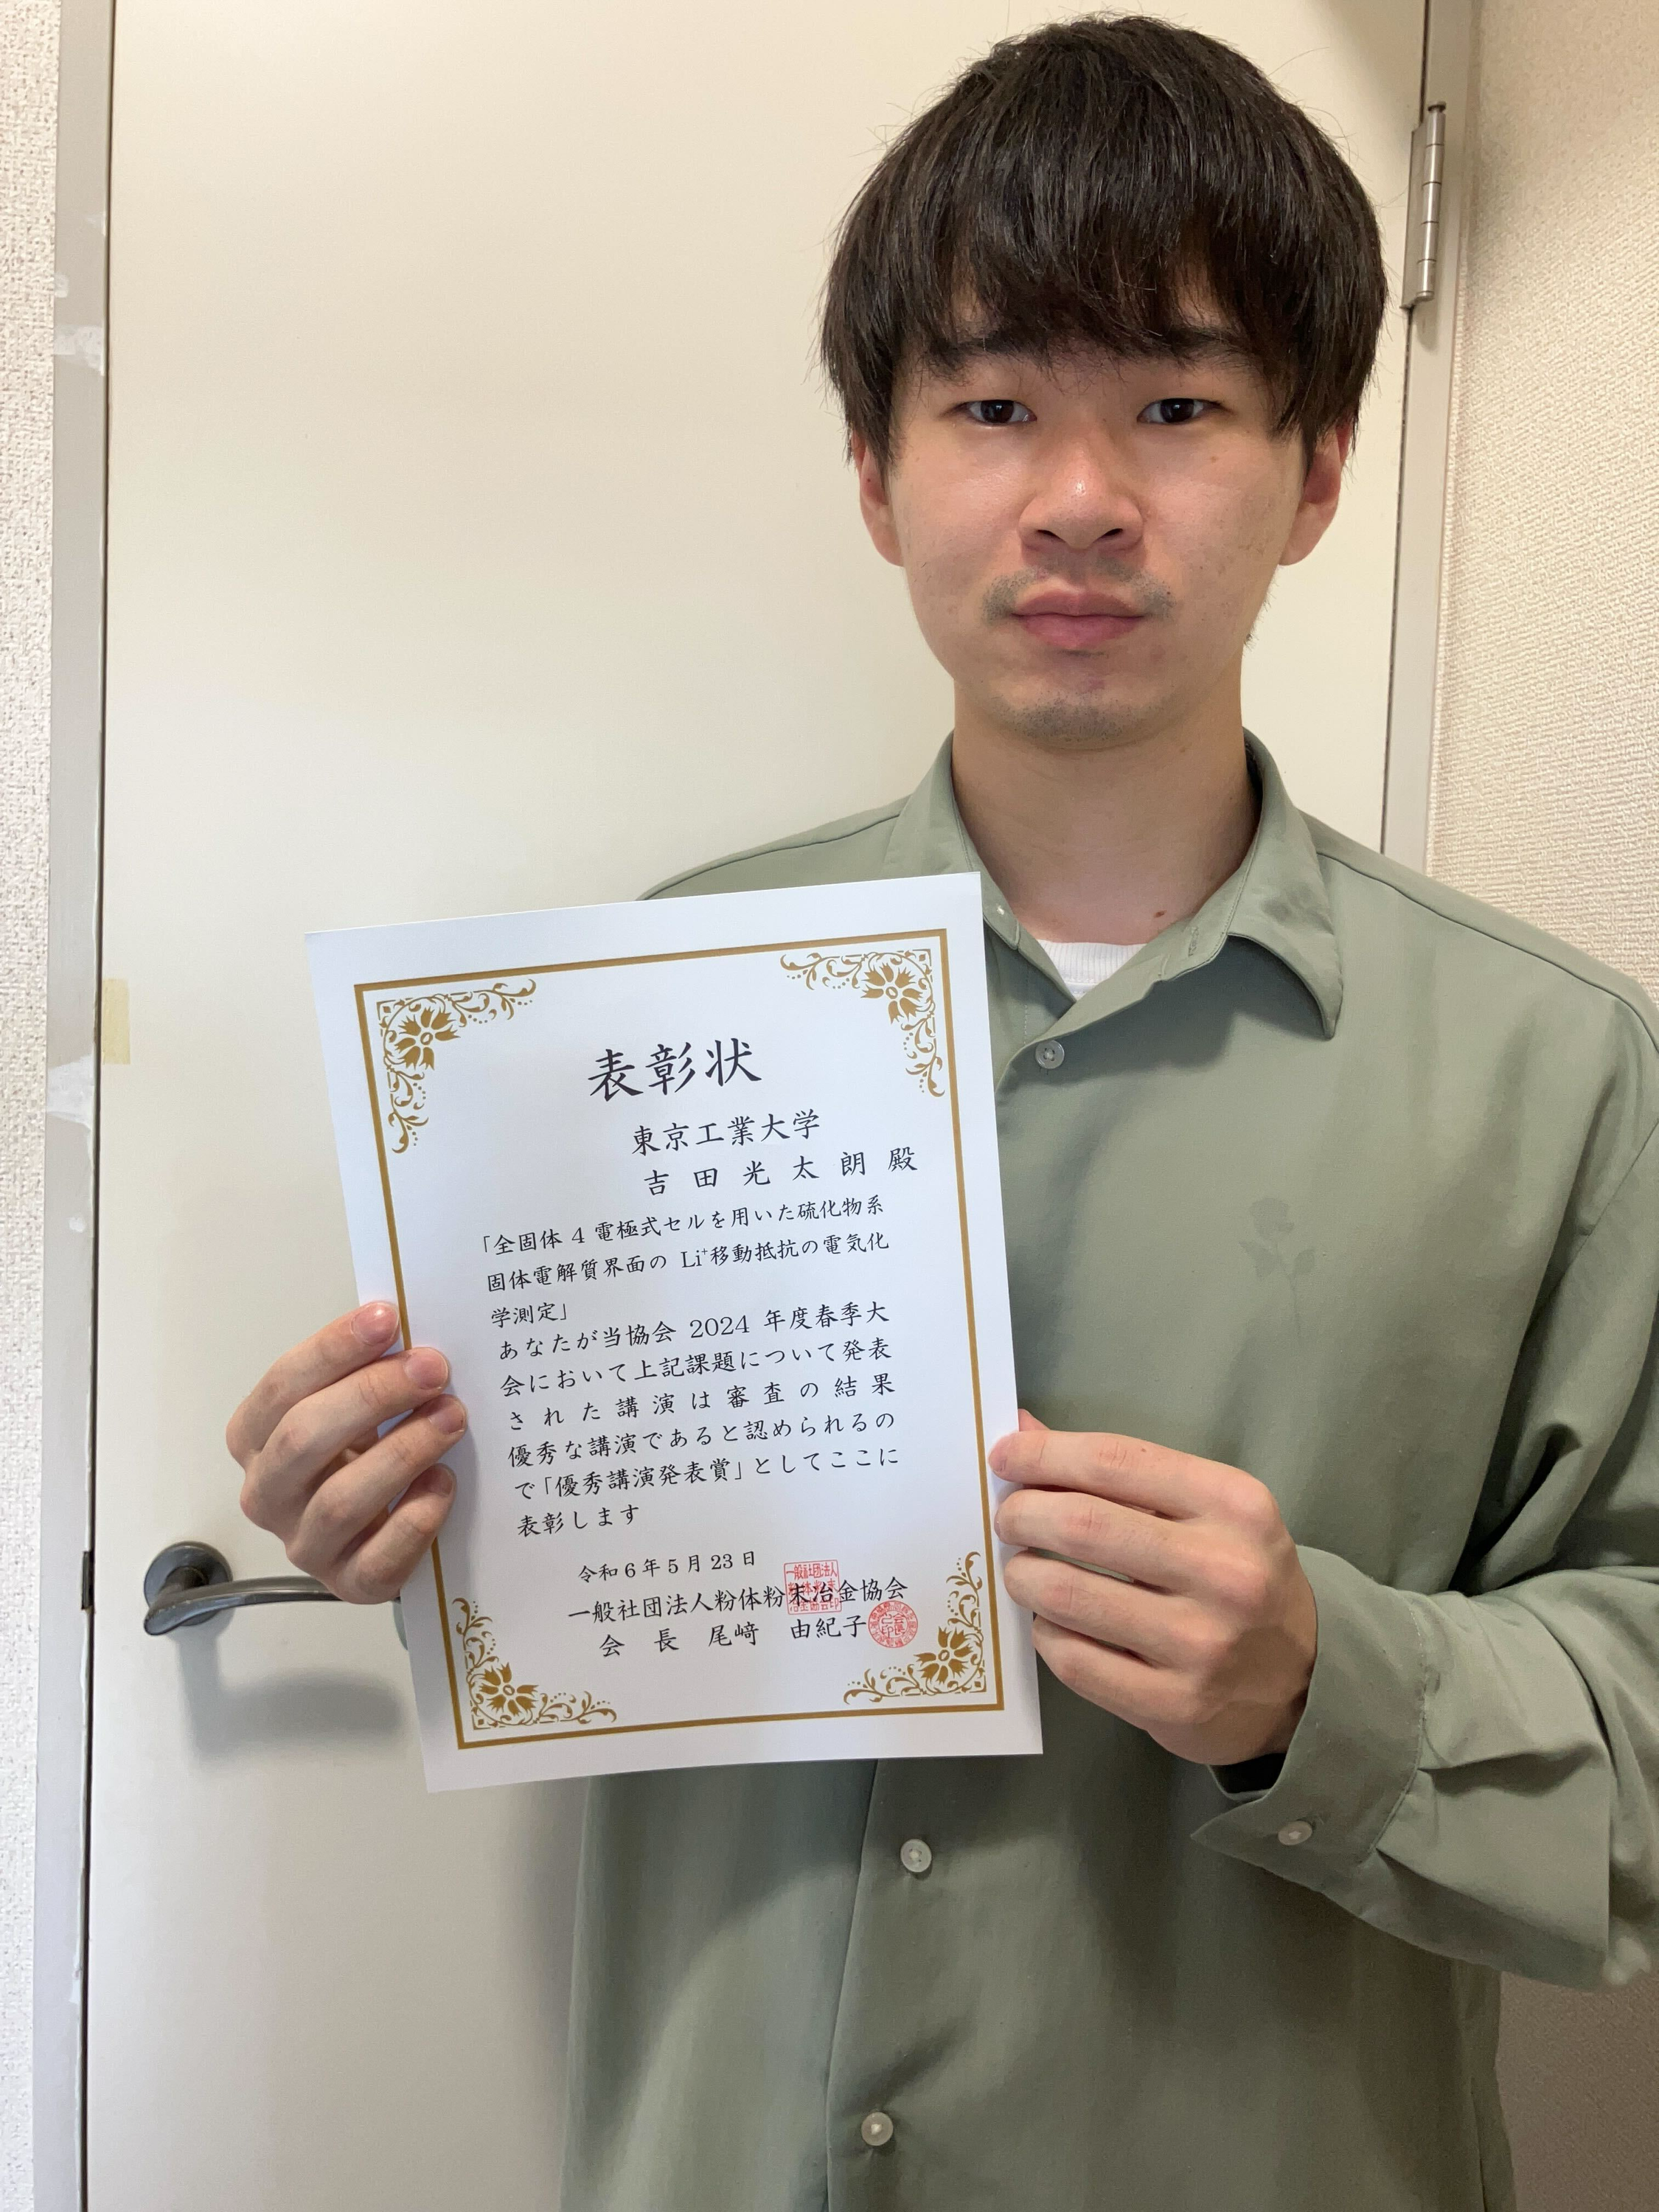 表彰状
東京工業大学
吉田光太朗殿
「全固体 4 電極式セルを用いた硫化物系
固体電解質界面の Li⁺移動抵抗の電気化
学測定」
あなたが当協会 2024 年度春季大
会において上記課題について発表
された講演は審査の結果
優秀な講演であると認められるの
で「優秀講演発表賞」としてここに
表彰します
令和6年5月23日
一般社団法人粉体粉末冶金協会
会長 尾﨑 由紀子